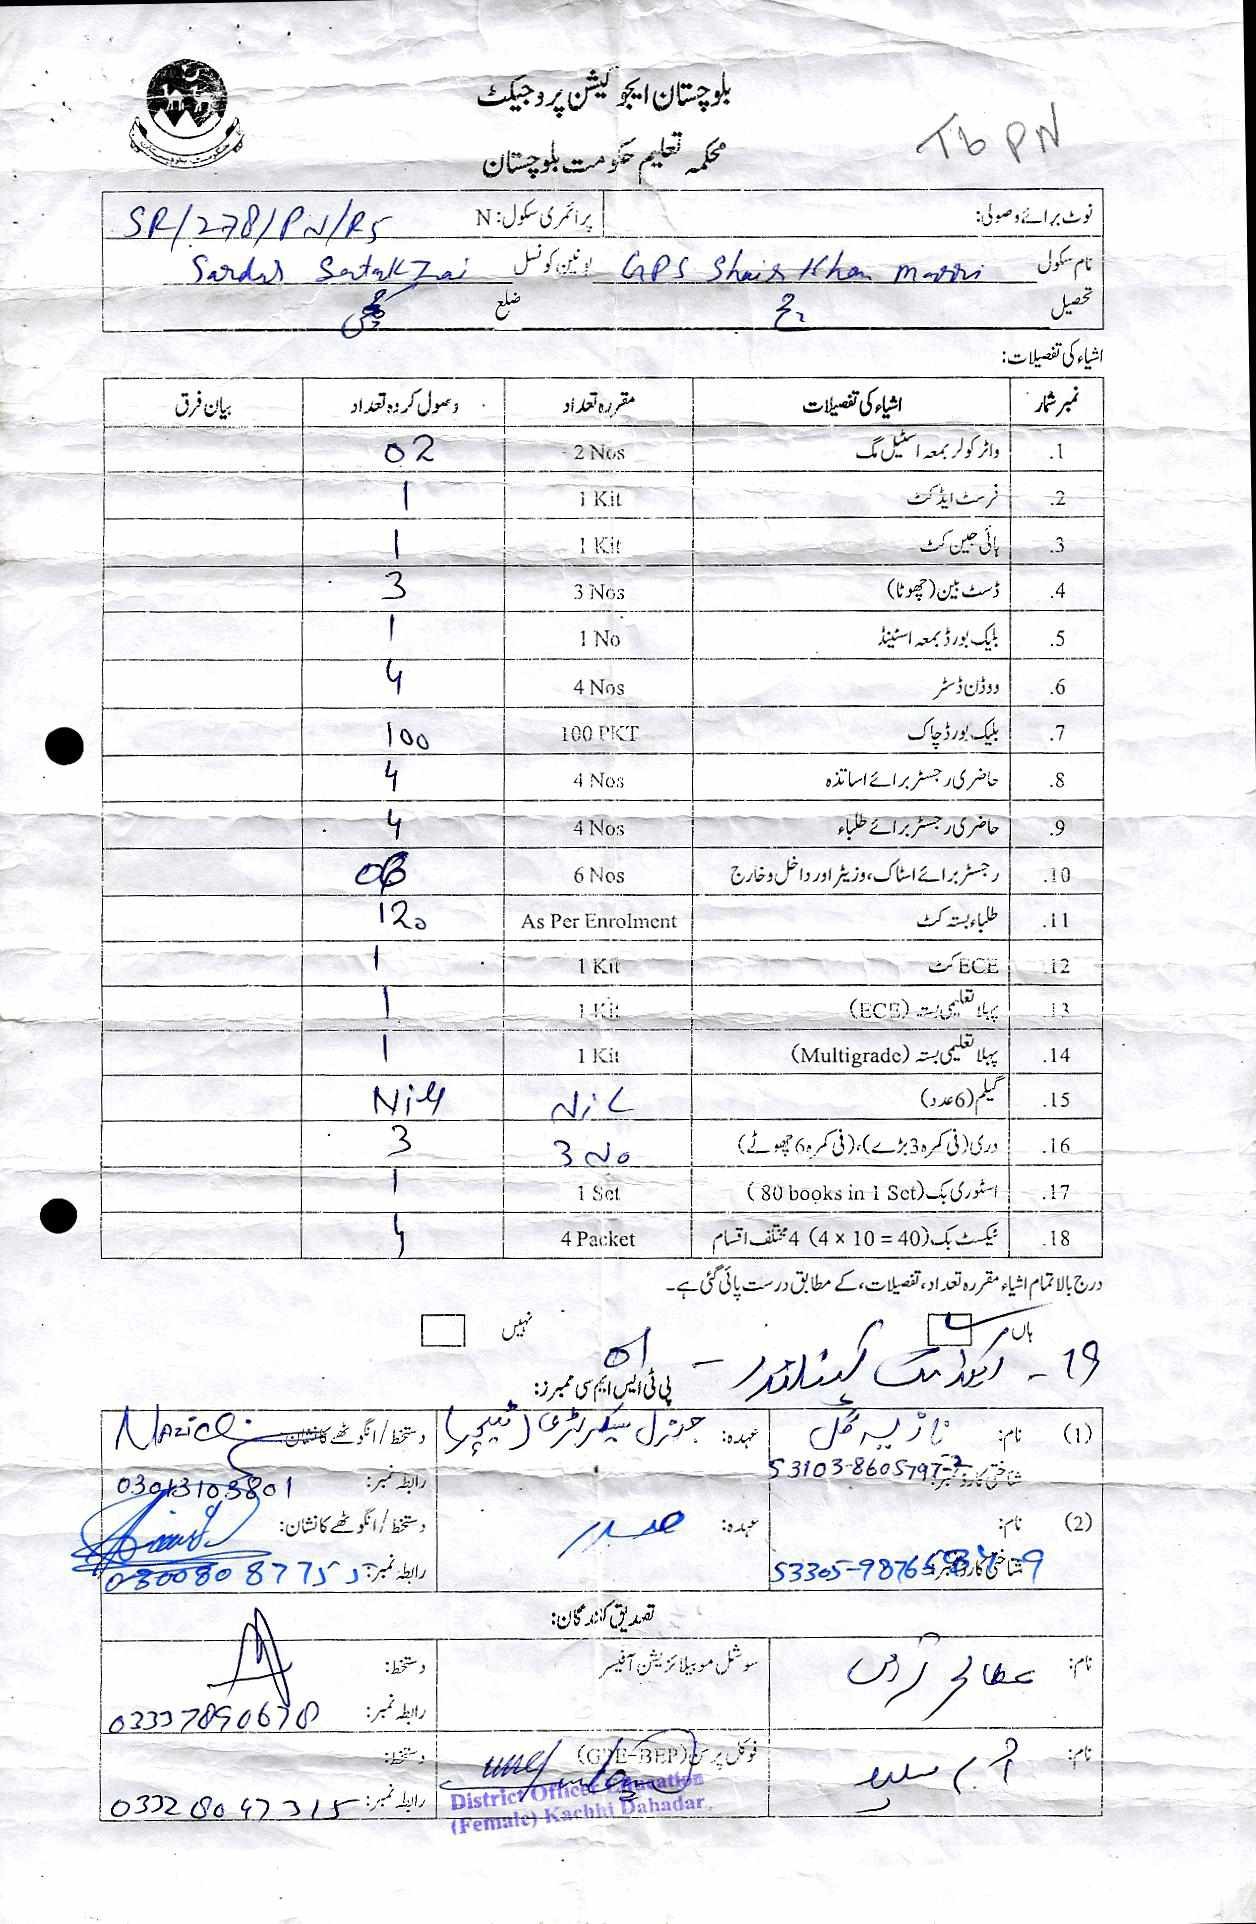 بلوچستان ایجوکیشن پروجیکٹ
محکمہ تعلیم حکومت بلوچستان
Tb PN
نوٹ برائے وصولی: پرائمری سکول: N SR/278/PN/RS
نام سکول GPS Shair Khan marri یونین کونسل Sardar Satakzai
تحصیل ضلع
اشیاء کی تفصیلات:
نمبر شمار اشیاء کی تفصیلات مقررہ تعداد وصول کردہ تعداد بیان فرق
1. واٹر کولر بمعہ اسٹیل مگ 2 Nos 02
2. فرسٹ ایڈ کٹ 1 Kit 1
3. ہائی جین کٹ 1 Kit 1
4. ڈسٹ بین (چھوٹا) 3 Nos 3
5. بلیک بورڈ بمعہ اسٹینڈ 1 No 1
6. ووڈن ڈسٹر 4 Nos 4
7. بلیک بورڈ چاک 100 PKT 100
8. حاضری رجسٹر برائے اساتذہ 4 Nos 4
9. حاضری رجسٹر برائے طلباء 4 Nos 4
10. رجسٹر برائے اسٹاک، وزیٹر اور داخل و خارج 6 Nos 06
11. طلباء بستہ کٹ As Per Enrolment 120
12. ECE کٹ 1 Kit 1
13. پہلا تعلیمی بستہ (ECE) 1 Kit 1
14. پہلا تعلیمی بستہ (Multigrade) 1 Kit 1
15. گیلم (6 عدد) Nil Nil
16. دری (فی کمرہ 3 بڑے)، (فی کمرہ 6 چھوٹے) 3 No 3
17. اسٹوری بک (80 books in 1 Set) 1 Set 1
18. ٹیکسٹ بک (4 × 10 = 40) 4 مختلف اقسام 4 Packet 4
درج بالا تمام اشیاء مقررہ تعداد، تفصیلات، کے مطابق درست پائی گئی ہے۔
ہاں نہیں
19 - 01
پی ٹی ایس ایم سی ممبرز:
(1) نام: نازیہ گل عہدہ: جنرل سیکرٹری (ٹیچر) دستخط/انگوٹھے کا نشان:
شناختی کارڈ نمبر: 53103-8605797-2 رابطہ نمبر: 03013103801
(2) نام: عہدہ: صدر دستخط/انگوٹھے کا نشان:
شناختی کارڈ نمبر: رابطہ نمبر:
تصدیق کنندگان:
نام: سوشل موبیلائزیشن آفیسر دستخط:
رابطہ نمبر: 03337890678
نام: فوکل پرسن (GPE-BEP) دستخط:
District Officer Education
(Female) Kachhi Dahadar.
رابطہ نمبر: 03328047315